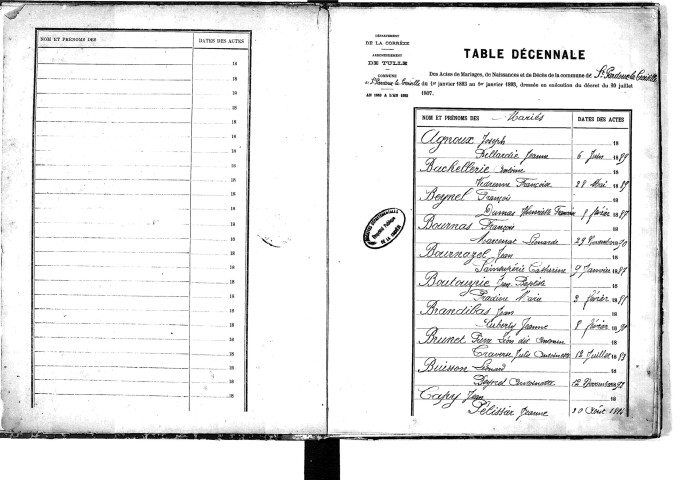 NOM ET PRÉNOMS DES
DATES DES ACTES
18
18
18
18
18
18
18
18
18
18
18
18
18
18
18
18
18
18
18
18
DÉPARTEMENT
DE LA CORRÈZE
ARRONDISSEMENT
DE TULLE
COMMUNE
de St Pardoux la Croisille
AN 1883 A L'AN 1893
TABLE DÉCENNALE
Des Actes de Mariages, de Naissances et de Décès de la commune de St Pardoux la Croisille
du 1er janvier 1883 au 1er janvier 1893, dressée en exécution du décret du 20 juillet
1807.
NOM ET PRÉNOMS DES Mariés
DATES DES ACTES
Agnoux Joseph 18
Jeanne 6 Juin 18
Bachellerie Antoine 18
Vedrenne Françoise 28 Mai 1889
Beynel François 18
Dumas Henriette février 18
Bournas François 18
Marcenat Léonarde 29 Novembre 90
Bournazel Jean 18
Catherine 9 Janvier 1887
Boutouyrie Jean Baptiste 18
Pradine Marie 2 février 18
Brandibas Jean 18
Auberty Jeanne 8 février 18
Brunet Pierre Léon dit Antonin 18
Traverse Julie Antoinette 12 Juillet 18
Buisson Léonard 18
Antoinette 12 Novembre
Capy Jean 18
Pélissier Jeanne 30 Août
ARCHIVES DÉPARTEMENTALES
Propriété Publique
DE LA CORRÈZE